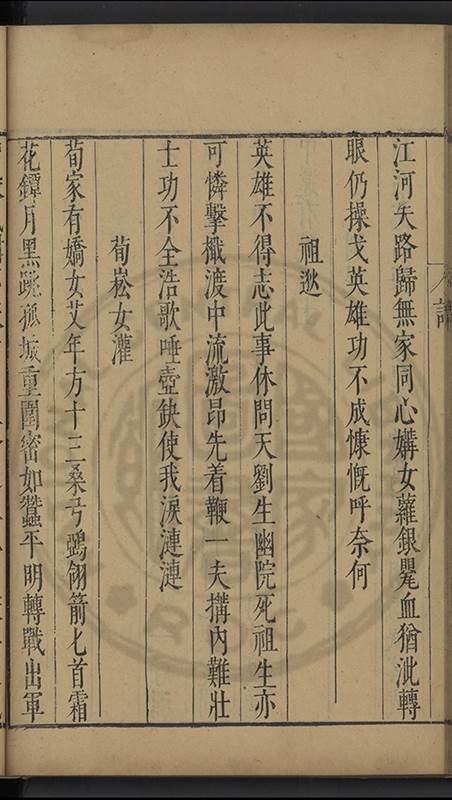 江河失路歸無家同心媾女蘿銀鼊血猶沘轉
眼仍操戈英雄功不成慷慨呼奈何
祖逖
英雄不得志此事休問天劉生幽院死祖生亦
可憐擊檝渡中流激昂先着鞭一夫搆內難壯
士功不全浩歌唾壺缺使我淚漣漣
荀崧女灌
荀家有嬌女艾年方十三桑弓鵶翎箭匕首霜
花鐔月黑跳孤城重圍密如蠶平明轉戰出軍